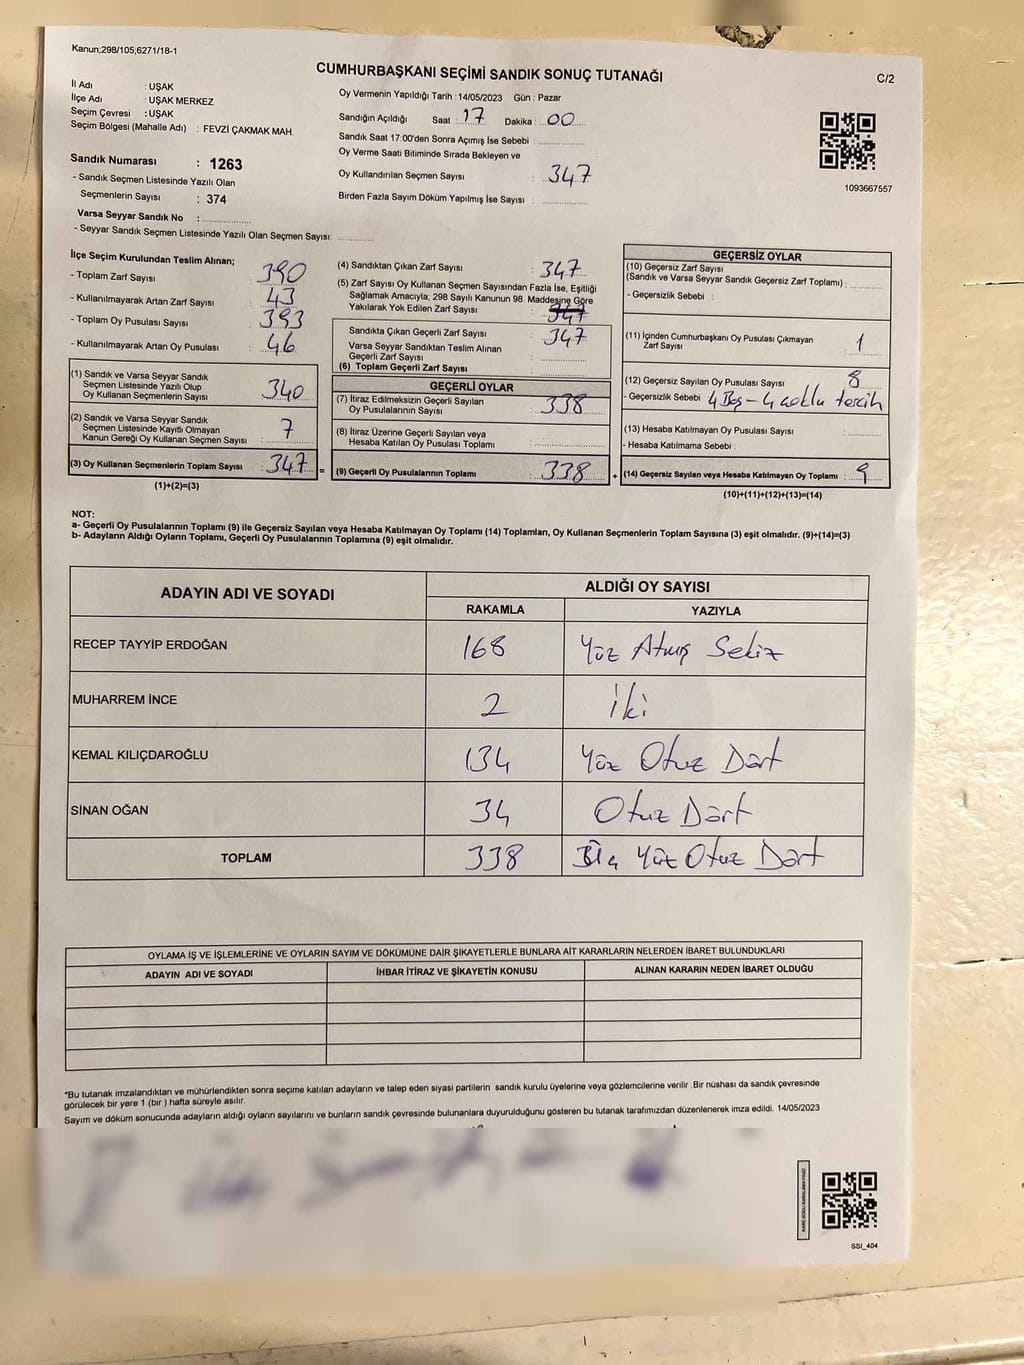 Kanun;298/105,6271/18-1
CUMHURBAŞKANI SEÇİMİ SANDIK SONUÇ TUTANAĞI
C/2
İl Adı : UŞAK
İlçe Adı : UŞAK MERKEZ
Seçim Çevresi : UŞAK
Seçim Bölgesi (Mahalle Adı) : FEVZİ ÇAKMAK MAH.
Sandık Numarası : 1263
- Sandık Seçmen Listesinde Yazılı Olan
Seçmenlerin Sayısı : 374
Varsa Seyyar Sandık No :
- Seyyar Sandık Seçmen Listesinde Yazılı Olan Seçmen Sayısı:
Oy Vermenin Yapıldığı Tarih : 14/05/2023 Gün : Pazar
Sandığın Açıldığı Saat : 17 Dakika : 00
Sandık Saat 17:00'den Sonra Açımış İse Sebebi :
Oy Verme Saati Bitiminde Sırada Bekleyen ve
Oy Kullandırılan Seçmen Sayısı : 347
Birden Fazla Sayım Döküm Yapılmış İse Sayısı :
1093667557
İlçe Seçim Kurulundan Teslim Alınan;
- Toplam Zarf Sayısı : 390
- Kullanılmayarak Artan Zarf Sayısı : 43
- Toplam Oy Pusulası Sayısı : 393
- Kullanılmayarak Artan Oy Pusulası : 46
(1) Sandık ve Varsa Seyyar Sandık
Seçmen Listesinde Yazılı Olup
Oy Kullanan Seçmenlerin Sayısı : 340
(2) Sandık ve Varsa Seyyar Sandık
Seçmen Listesinde Kayıtlı Olmayan
Kanun Gereği Oy Kullanan Seçmen Sayısı : 7
(3) Oy Kullanan Seçmenlerin Toplam Sayısı : 347 =
(1)+(2)=(3)
(4) Sandıktan Çıkan Zarf Sayısı : 347
(5) Zarf Sayısı Oy Kullanan Seçmen Sayısından Fazla İse, Eşitliği
Sağlamak Amacıyla; 298 Sayılı Kanunun 98. Maddesine Göre
Yakılarak Yok Edilen Zarf Sayısı : 347
Sandıkta Çıkan Geçerli Zarf Sayısı : 347
Varsa Seyyar Sandıktan Teslim Alınan
Geçerli Zarf Sayısı :
(6) Toplam Geçerli Zarf Sayısı :
GEÇERLİ OYLAR
(7) İtiraz Edilmeksizin Geçerli Sayılan
Oy Pusulalarının Sayısı : 338
(8) İtiraz Üzerine Geçerli Sayılan veya
Hesaba Katılan Oy Pusulası Toplamı :
(9) Geçerli Oy Pusulalarının Toplamı : 338 +
GEÇERSİZ OYLAR
(10) Geçersiz Zarf Sayısı
(Sandık ve Varsa Seyyar Sandık Geçersiz Zarf Toplamı) :
- Geçersizlik Sebebi :
(11) İçinden Cumhurbaşkanı Oy Pusulası Çıkmayan
Zarf Sayısı : 1
(12) Geçersiz Sayılan Oy Pusulası Sayısı : 8
- Geçersizlik Sebebi : 4 Boş - 4 çoklu tercih
(13) Hesaba Katılmayan Oy Pusulası Sayısı :
- Hesaba Katılmama Sebebi :
(14) Geçersiz Sayılan veya Hesaba Katılmayan Oy Toplamı : 9
(10)+(11)+(12)+(13)=(14)
NOT:
a- Geçerli Oy Pusulalarının Toplamı (9) ile Geçersiz Sayılan veya Hesaba Katılmayan Oy Toplamı (14) Toplamları, Oy Kullanan Seçmenlerin Toplam Sayısına (3) eşit olmalıdır. (9)+(14)=(3)
b- Adayların Aldığı Oyların Toplamı, Geçerli Oy Pusulalarının Toplamına (9) eşit olmalıdır.
ADAYIN ADI VE SOYADI
ALDIĞI OY SAYISI
RAKAMLA YAZIYLA
RECEP TAYYİP ERDOĞAN 168 Yüz Atmış Sekiz
MUHARREM İNCE 2 İki
KEMAL KILIÇDAROĞLU 134 Yüz Otuz Dört
SİNAN OĞAN 34 Otuz Dört
TOPLAM 338 Yüz Otuz Dört
OYLAMA İŞ VE İŞLEMLERİNE VE OYLARIN SAYIM VE DÖKÜMÜNE DAİR ŞİKAYETLERLE BUNLARA AİT KARARLARIN NELERDEN İBARET BULUNDUKLARI
ADAYIN ADI VE SOYADI İHBAR İTİRAZ VE ŞİKAYETİN KONUSU ALINAN KARARIN NEDEN İBARET OLDUĞU
*Bu tutanak imzalandıktan ve mühürlendikten sonra seçime katılan adayların ve talep eden siyasi partilerin sandık kurulu üyelerine veya gözlemcilerine verilir .Bir nüshası da sandık çevresinde
görülecek bir yere 1 (bir ) hafta süreyle asılır.
Sayım ve döküm sonucunda adayların aldığı oyların sayılarını ve bunların sandık çevresinde bulunanlara duyurulduğunu gösteren bu tutanak tarafımızdan düzenlenerek imza edildi. 14/05/2023
SSI_404